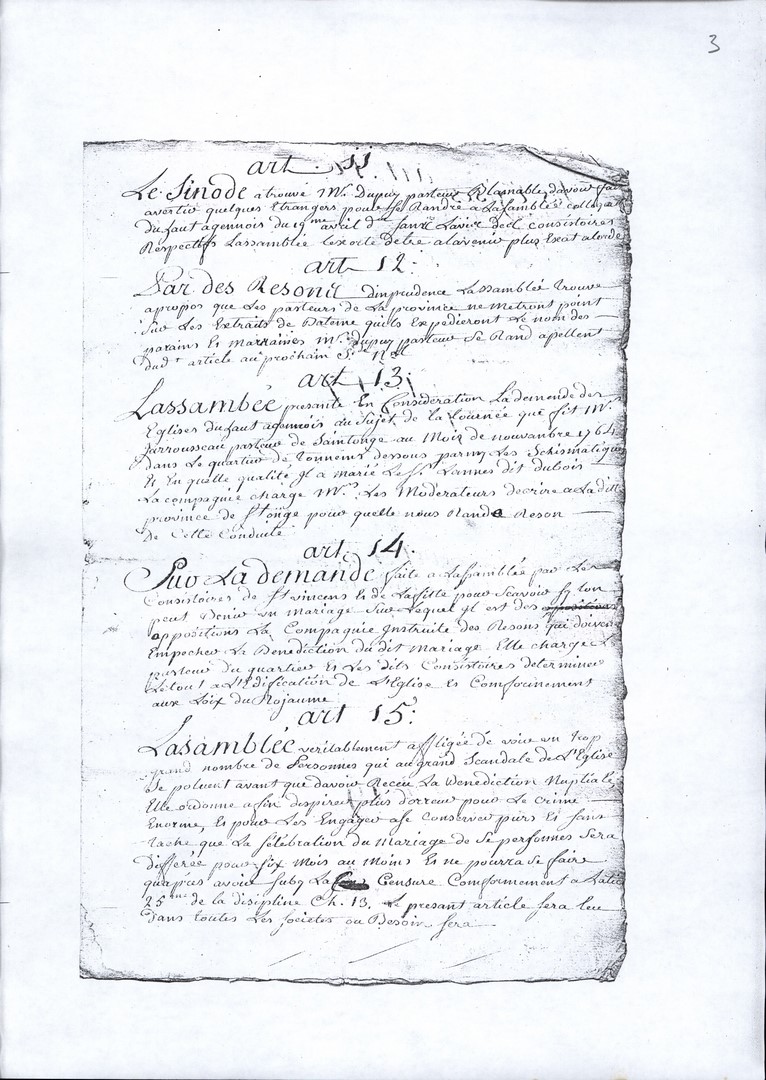 3
art. 11
Le Sinode a trouvé Mr. Dupuy pasteur Blamable davoir fait
avertir quelques Etrangers pour se Randre a Lassamblée
du haut agennois du 19me avril d
Respectifs Lassamblée lexorte detre alavenir plus Exat
art 12.
Par des Resons dinprudence Lassamblée trouve
apropos que Les pasteurs de La province ne metront point
sur Les Extraits de Bateme quils Expedieront Le nom des
parains Et marraines Mr. Dupuy pasteur se Rand apellent
dudt article au prochain
art 13:
Lassambée presante En Consideration La demende des
Eglises du haut agennois au sujet de la tournée que fit Mr.
Jarrousseau pasteur de Saintonge au Mois de nouvanbre 1764
dans Le quartier de Tonneins dessous parmy Les Schismatiques
Et En quelle qualité yl a marié Le Sr. Lannes dit dubois
La compagnie charge Mrs. Les Moderateurs decrire a La ditte
province de Stonge pour quelle nous Rande Reson
de Cette Conduite
art. 14.
Sur La demande faite a Lassamblée par Les
Consistoires de St vincens Et de Lafitte pour scavoir sy lon
peut Benir un Mariage sur Lequel yl est des oppositions
oppositions La Compagnie Instruite des Resons qui doivent
Empecher La Benediction du dit Mariage Elle charge Le
pasteur du quartier Et Les dits Consistoires determiner
Le tout a L'Edification de L'Eglise Et Comformement
aux Loix du Royaume
art 15:
Lasamblée veritablement affligée de voir un trop
grand nombre de Personnes qui au grand Scandale de L'Eglise
se poluent avant que davoir Receu La Benediction Nuptiale
Elle ordonne afin dinspirer plus dorreur pour Le crime
Enorme, Et pour Les Engager a se Conserver purs Et sans
tache que La selebration du Mariage de se personnes sera
differée pour six Mois au moins Et ne pourra se faire
quaprès avoir suby La Censure Comformement a Latic
25me de la disipline Ch. 13, Le presant article sera leu
dans toutes Les societes ou Besoin sera